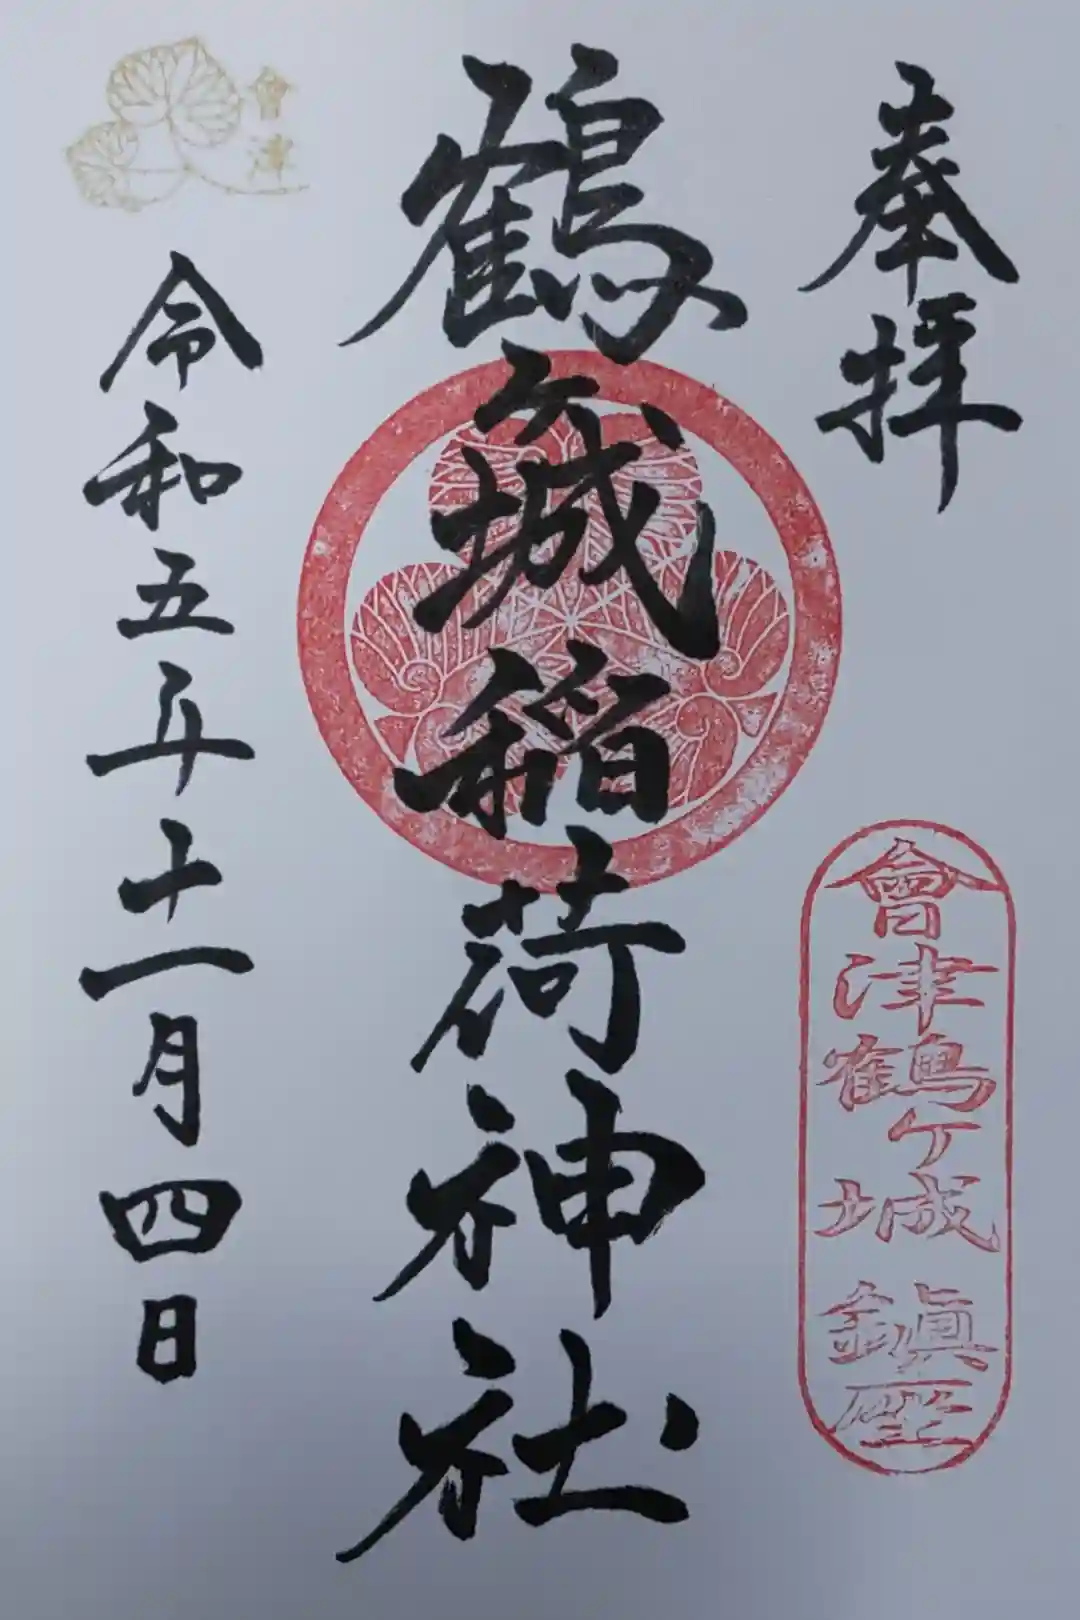 奉拝
會津鶴ケ城鎮座
鶴ヶ城稲荷神社
會津
令和五年十一月四日